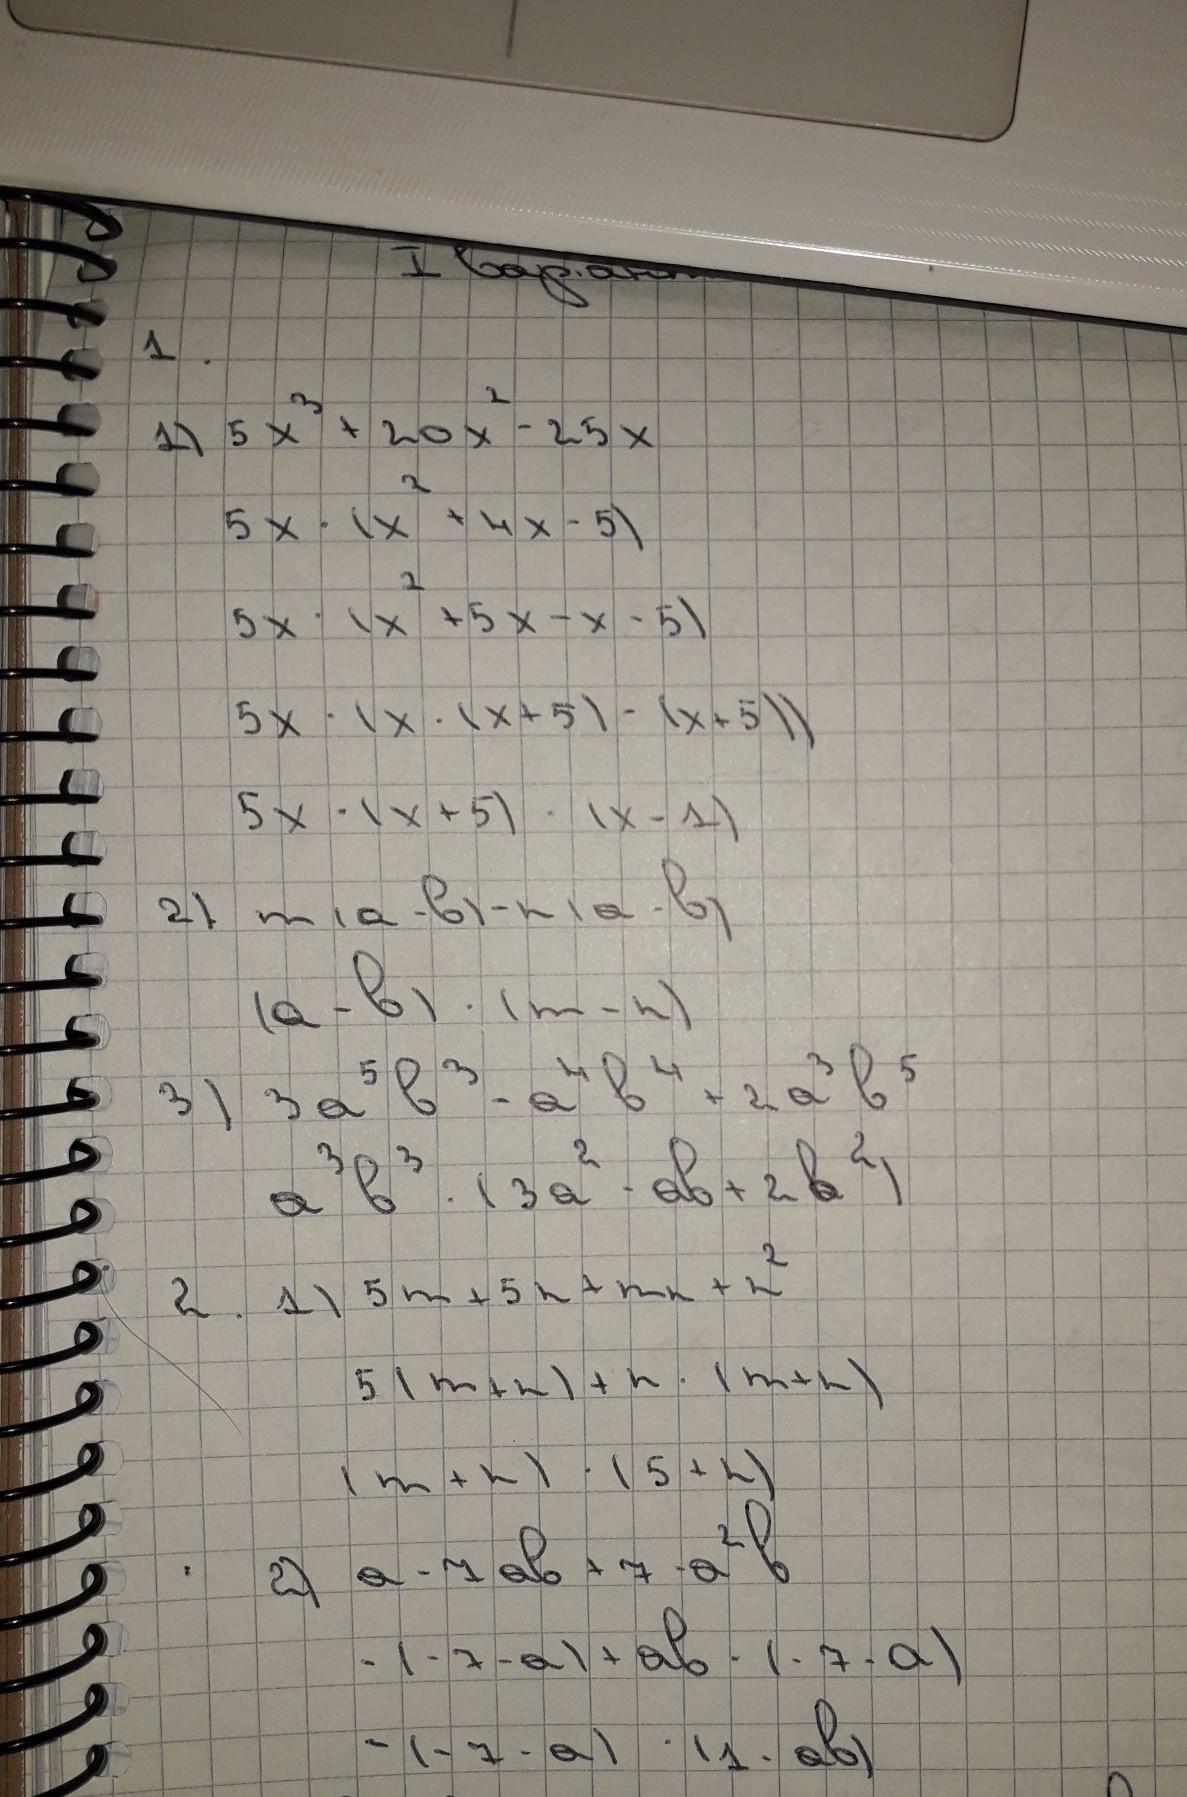 I вариант
1.
1) 5x³ + 20x² - 25x
5x · (x² + 4x - 5)
5x · (x² + 5x - x - 5)
5x · (x · (x + 5) - (x + 5))
5x · (x + 5) · (x - 1)
2) m(a - b) - n(a - b)
(a - b) · (m - n)
3) 3a⁵b³ - a⁴b⁴ + 2a³b⁵
a³b³ · (3a² - ab + 2b²)
2. 1) 5m + 5n + mn + n²
5(m + n) + n · (m + n)
(m + n) · (5 + n)
2) a - 7ab + 7 - a²b
-(-7 - a) + ab · (-7 - a)
-(-7 - a) · (1 - ab)